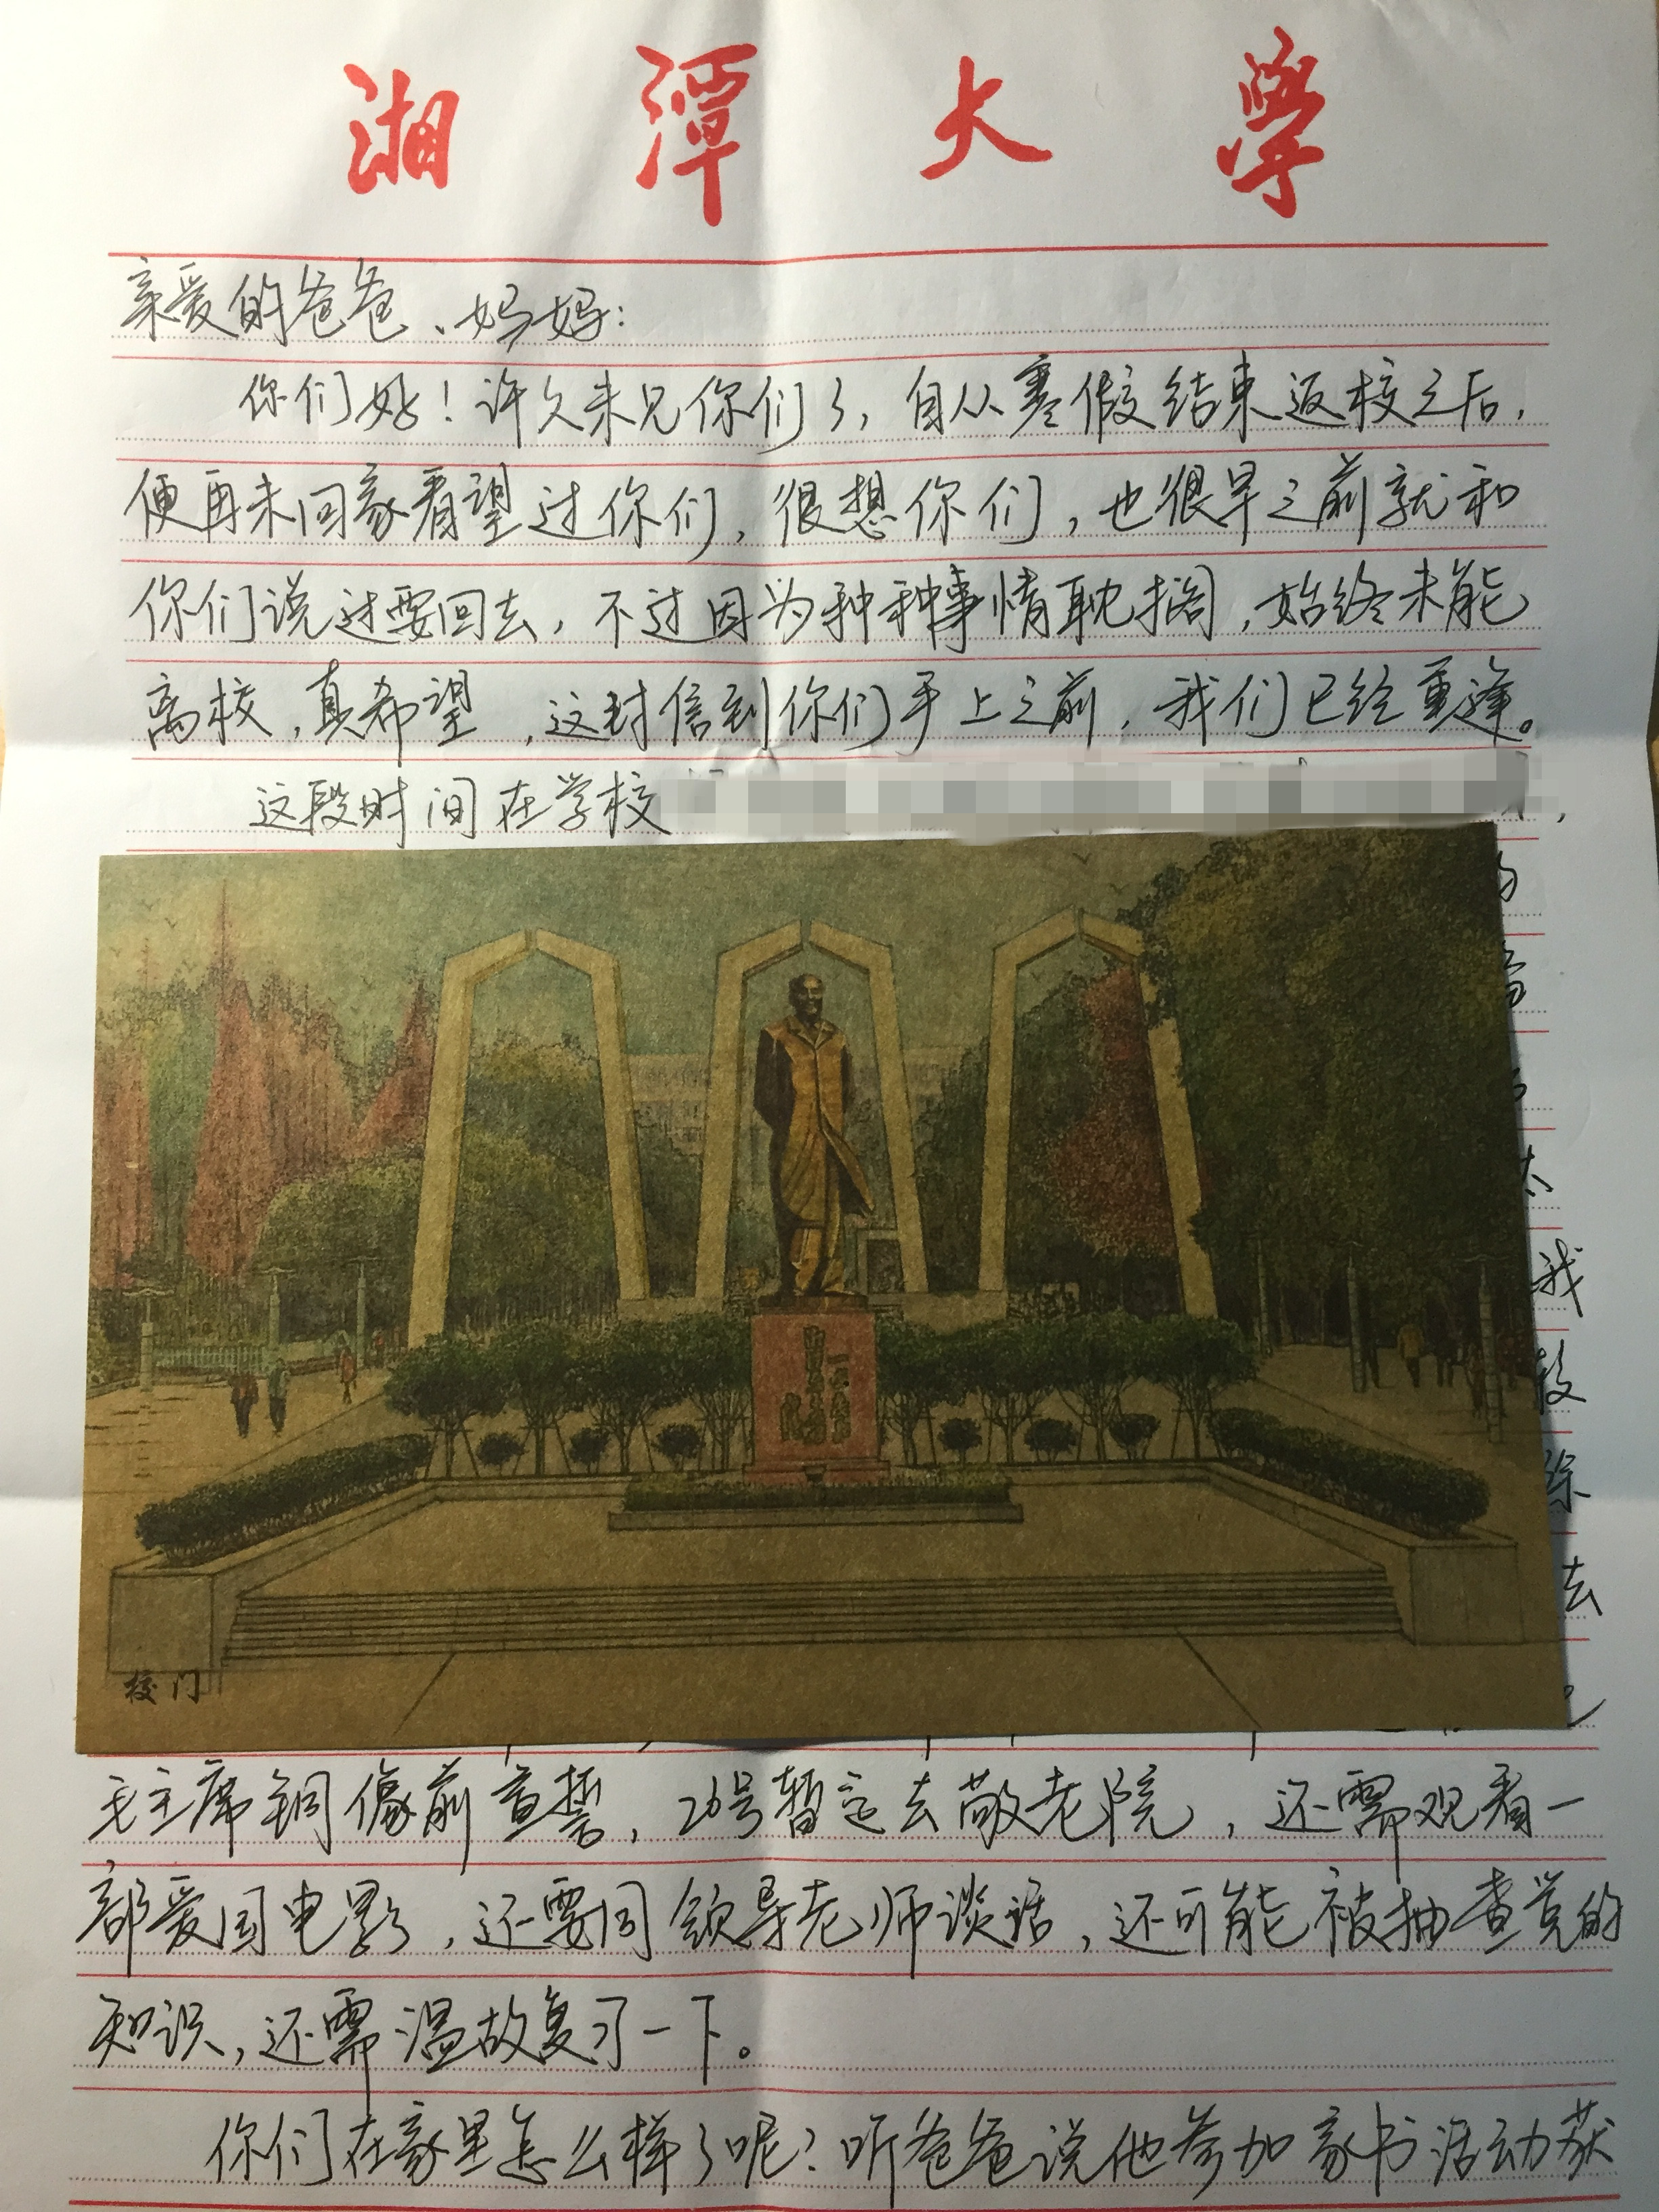 湘潭大学
亲爱的爸爸、妈妈:
你们好!许久未见你们了,自从寒假结束返校之后,
便再未回家看望过你们,很想你们,也很早之前就和
你们说过要回去,不过因为种种事情耽搁,始终未能
离校,真希望,这封信到你们手上之前,我们已经重逢。
这段时间在学校
我
去
校门
毛主席铜像前宣誓,26号暂定去敬老院,还需观看一
部爱国电影,还要同领导老师谈话,还可能被抽查党的
知识,还需温故复习一下。
你们在家里怎么样了呢?听爸爸说他参加家书活动获